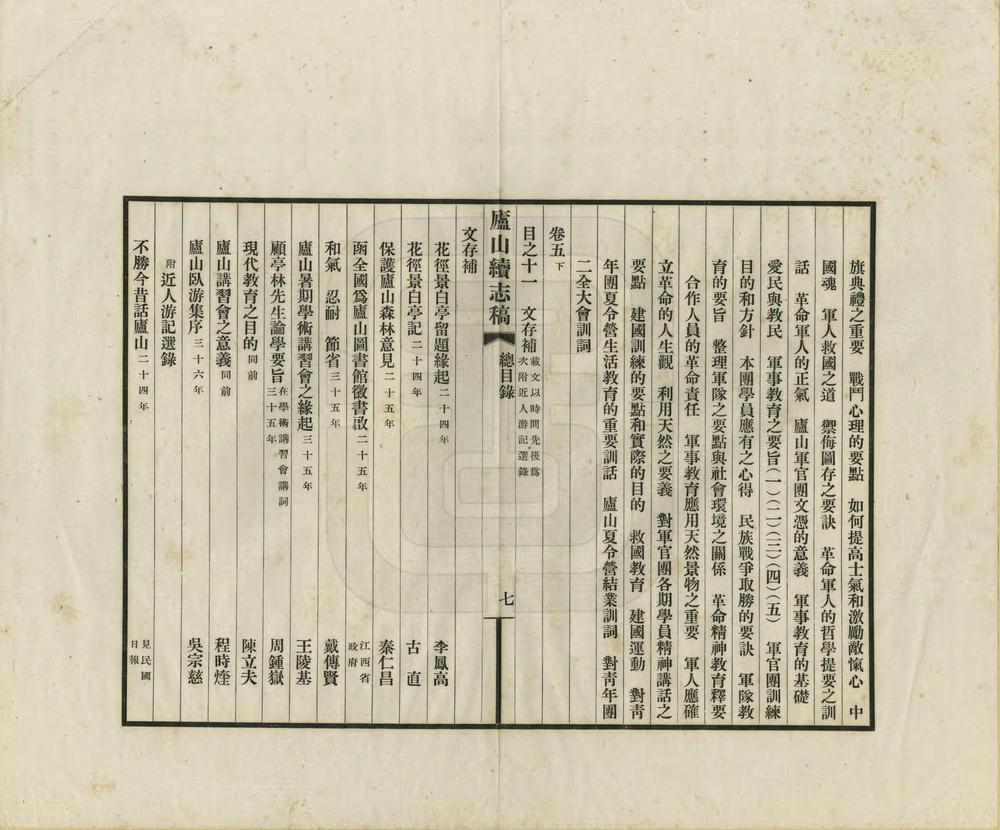 旗典禮之重要　戰鬥心理的要點　如何提高士氣和激勵敵愾心　中
國魂　軍人救國之道　禦侮圖存之要訣　革命軍人的哲學提要之訓
話　革命軍人的正氣　廬山軍官團文憑的意義　軍事教育的基礎
愛民與教民　軍事教育之要旨(一)(二)(三)(四)(五)　軍官團訓練
目的和方針　本團學員應有之心得　民族戰爭取勝的要訣　軍隊教
育的要旨　整理軍隊之要點與社會環境之關係　革命精神教育釋要
合作人員的革命責任　軍事教育應用天然景物之重要　軍人應確
立革命的人生觀　利用天然之要義　對軍官團各期學員精神講話之
要點　建國訓練的要點和實際的目的　救國教育　建國運動　對青
年團夏令營生活教育的重要訓話　廬山夏令營結業訓詞　對青年團
二全大會訓詞
卷五下
目之十一　文存補載文以時間先後為次附近人游記選錄
廬山續志稿　總目錄　七
文存補
花徑景白亭留題緣起二十四年　李鳳高
花徑景白亭記二十四年　古　直
保護廬山森林意見二十五年　秦仁昌
函全國爲廬山圖書館徵書啟二十五年　江西省政府
和氣　忍耐　節省三十五年　戴傳賢
廬山暑期學術講習會之緣起三十五年　王陵基
顧亭林先生論學要旨在學術講習會講詞三十五年　周鍾嶽
現代教育之目的同前　陳立夫
廬山講習會之意義同前　程時煃
廬山臥游集序三十六年　吳宗慈
附近人游記選錄
不勝今昔話廬山二十四年　見民國日報